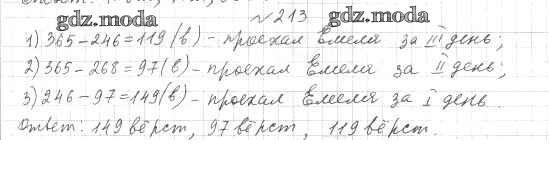 №213
gdz.moda gdz.moda
1) 365-246=119(в) - проехал Емеля за III день;
2) 365-268=97(в) - проехал Емеля за II день;
3) 246-97=149(в) - проехал Емеля за I день.
Ответ: 149 вёрст, 97 вёрст, 119 вёрст.